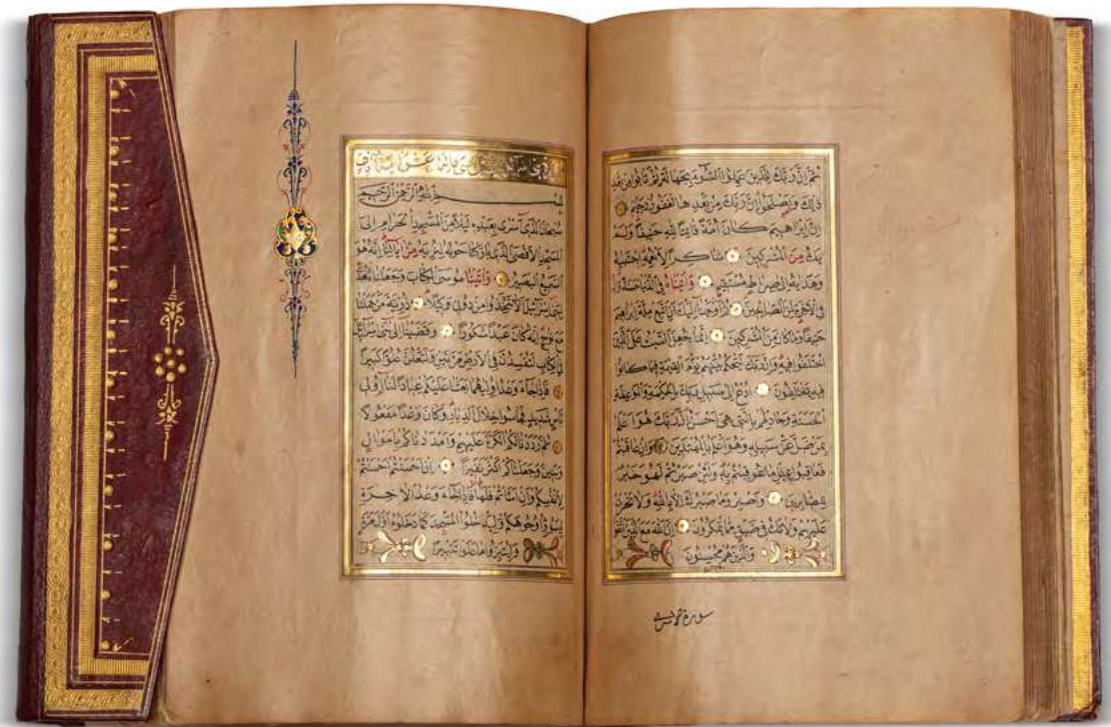 ثُمَّ اِنَّ رَبَّكَ لِلَّذِينَ عَمِلُوا السُّوءَ بِجَهَالَةٍ ثُمَّ تَابُوا مِنْ بَعْدِ
ذٰلِكَ وَاَصْلَحُوا اِنَّ رَبَّكَ مِنْ بَعْدِهَا لَغَفُورٌ رَحِيمٌ
اِنَّ اِبْرَاهِيمَ كَانَ اُمَّةً قَانِتًا لِلّٰهِ حَنِيفًا وَلَمْ
يَكُ مِنَ الْمُشْرِكِينَ شَاكِرًا لِاَنْعُمِهِ اِجْتَبٰيهُ
وَهَدٰيهُ اِلٰى صِرَاطٍ مُسْتَقِيمٍ وَاٰتَيْنَاهُ فِي الدُّنْيَا حَسَنَةً وَاِنَّهُ
فِي الْاٰخِرَةِ لَمِنَ الصَّالِحِينَ ثُمَّ اَوْحَيْنَا اِلَيْكَ اَنِ اتَّبِعْ مِلَّةَ اِبْرَاهِيمَ
حَنِيفًا وَمَا كَانَ مِنَ الْمُشْرِكِينَ اِنَّمَا جُعِلَ السَّبْتُ عَلَى الَّذِينَ
اخْتَلَفُوا فِيهِ وَاِنَّ رَبَّكَ لَيَحْكُمُ بَيْنَهُمْ يَوْمَ الْقِيٰمَةِ فِيمَا كَانُوا
فِيهِ يَخْتَلِفُونَ اُدْعُ اِلٰى سَبِيلِ رَبِّكَ بِالْحِكْمَةِ وَالْمَوْعِظَةِ
الْحَسَنَةِ وَجَادِلْهُمْ بِالَّتِي هِيَ اَحْسَنُ اِنَّ رَبَّكَ هُوَ اَعْلَمُ
بِمَنْ ضَلَّ عَنْ سَبِيلِهِ وَهُوَ اَعْلَمُ بِالْمُهْتَدِينَ وَاِنْ عَاقَبْتُمْ
فَعَاقِبُوا بِمِثْلِ مَا عُوقِبْتُمْ بِهِ وَلَئِنْ صَبَرْتُمْ لَهُوَ خَيْرٌ
لِلصَّابِرِينَ وَاصْبِرْ وَمَا صَبْرُكَ اِلَّا بِاللّٰهِ وَلَا تَحْزَنْ
عَلَيْهِمْ وَلَا تَكُ فِي ضَيْقٍ مِمَّا يَمْكُرُونَ اِنَّ اللّٰهَ مَعَ الَّذِينَ اتَّقَوْا
وَالَّذِينَ هُمْ مُحْسِنُونَ
بِسْمِ اللّٰهِ الرَّحْمٰنِ الرَّحِيمِ
سُبْحَانَ الَّذِي اَسْرٰى بِعَبْدِهِ لَيْلًا مِنَ الْمَسْجِدِ الْحَرَامِ اِلَى
الْمَسْجِدِ الْاَقْصَى الَّذِي بَارَكْنَا حَوْلَهُ لِنُرِيَهُ مِنْ اٰيَاتِنَا اِنَّهُ هُوَ
السَّمِيعُ الْبَصِيرُ وَاٰتَيْنَا مُوسَى الْكِتَابَ وَجَعَلْنَاهُ هُدًى
لِبَنِي اِسْرَائِيلَ اَلَّا تَتَّخِذُوا مِنْ دُونِي وَكِيلًا ذُرِّيَّةَ مَنْ حَمَلْنَا
مَعَ نُوحٍ اِنَّهُ كَانَ عَبْدًا شَكُورًا وَقَضَيْنَا اِلٰى بَنِي اِسْرَائِيلَ
فِي الْكِتَابِ لَتُفْسِدُنَّ فِي الْاَرْضِ مَرَّتَيْنِ وَلَتَعْلُنَّ عُلُوًّا كَبِيرًا
فَاِذَا جَاءَ وَعْدُ اُولٰيهُمَا بَعَثْنَا عَلَيْكُمْ عِبَادًا لَنَا اُولِي
بَأْسٍ شَدِيدٍ فَجَاسُوا خِلَالَ الدِّيَارِ وَكَانَ وَعْدًا مَفْعُولًا
ثُمَّ رَدَدْنَا لَكُمُ الْكَرَّةَ عَلَيْهِمْ وَاَمْدَدْنَاكُمْ بِاَمْوَالٍ
وَبَنِينَ وَجَعَلْنَاكُمْ اَكْثَرَ نَفِيرًا اِنْ اَحْسَنْتُمْ اَحْسَنْتُمْ
لِاَنْفُسِكُمْ وَاِنْ اَسَأْتُمْ فَلَهَا فَاِذَا جَاءَ وَعْدُ الْاٰخِرَةِ
لِيَسُوؤُا وُجُوهَكُمْ وَلِيَدْخُلُوا الْمَسْجِدَ كَمَا دَخَلُوهُ اَوَّلَ مَرَّةٍ
وَلِيُتَبِّرُوا مَا عَلَوْا تَتْبِيرًا